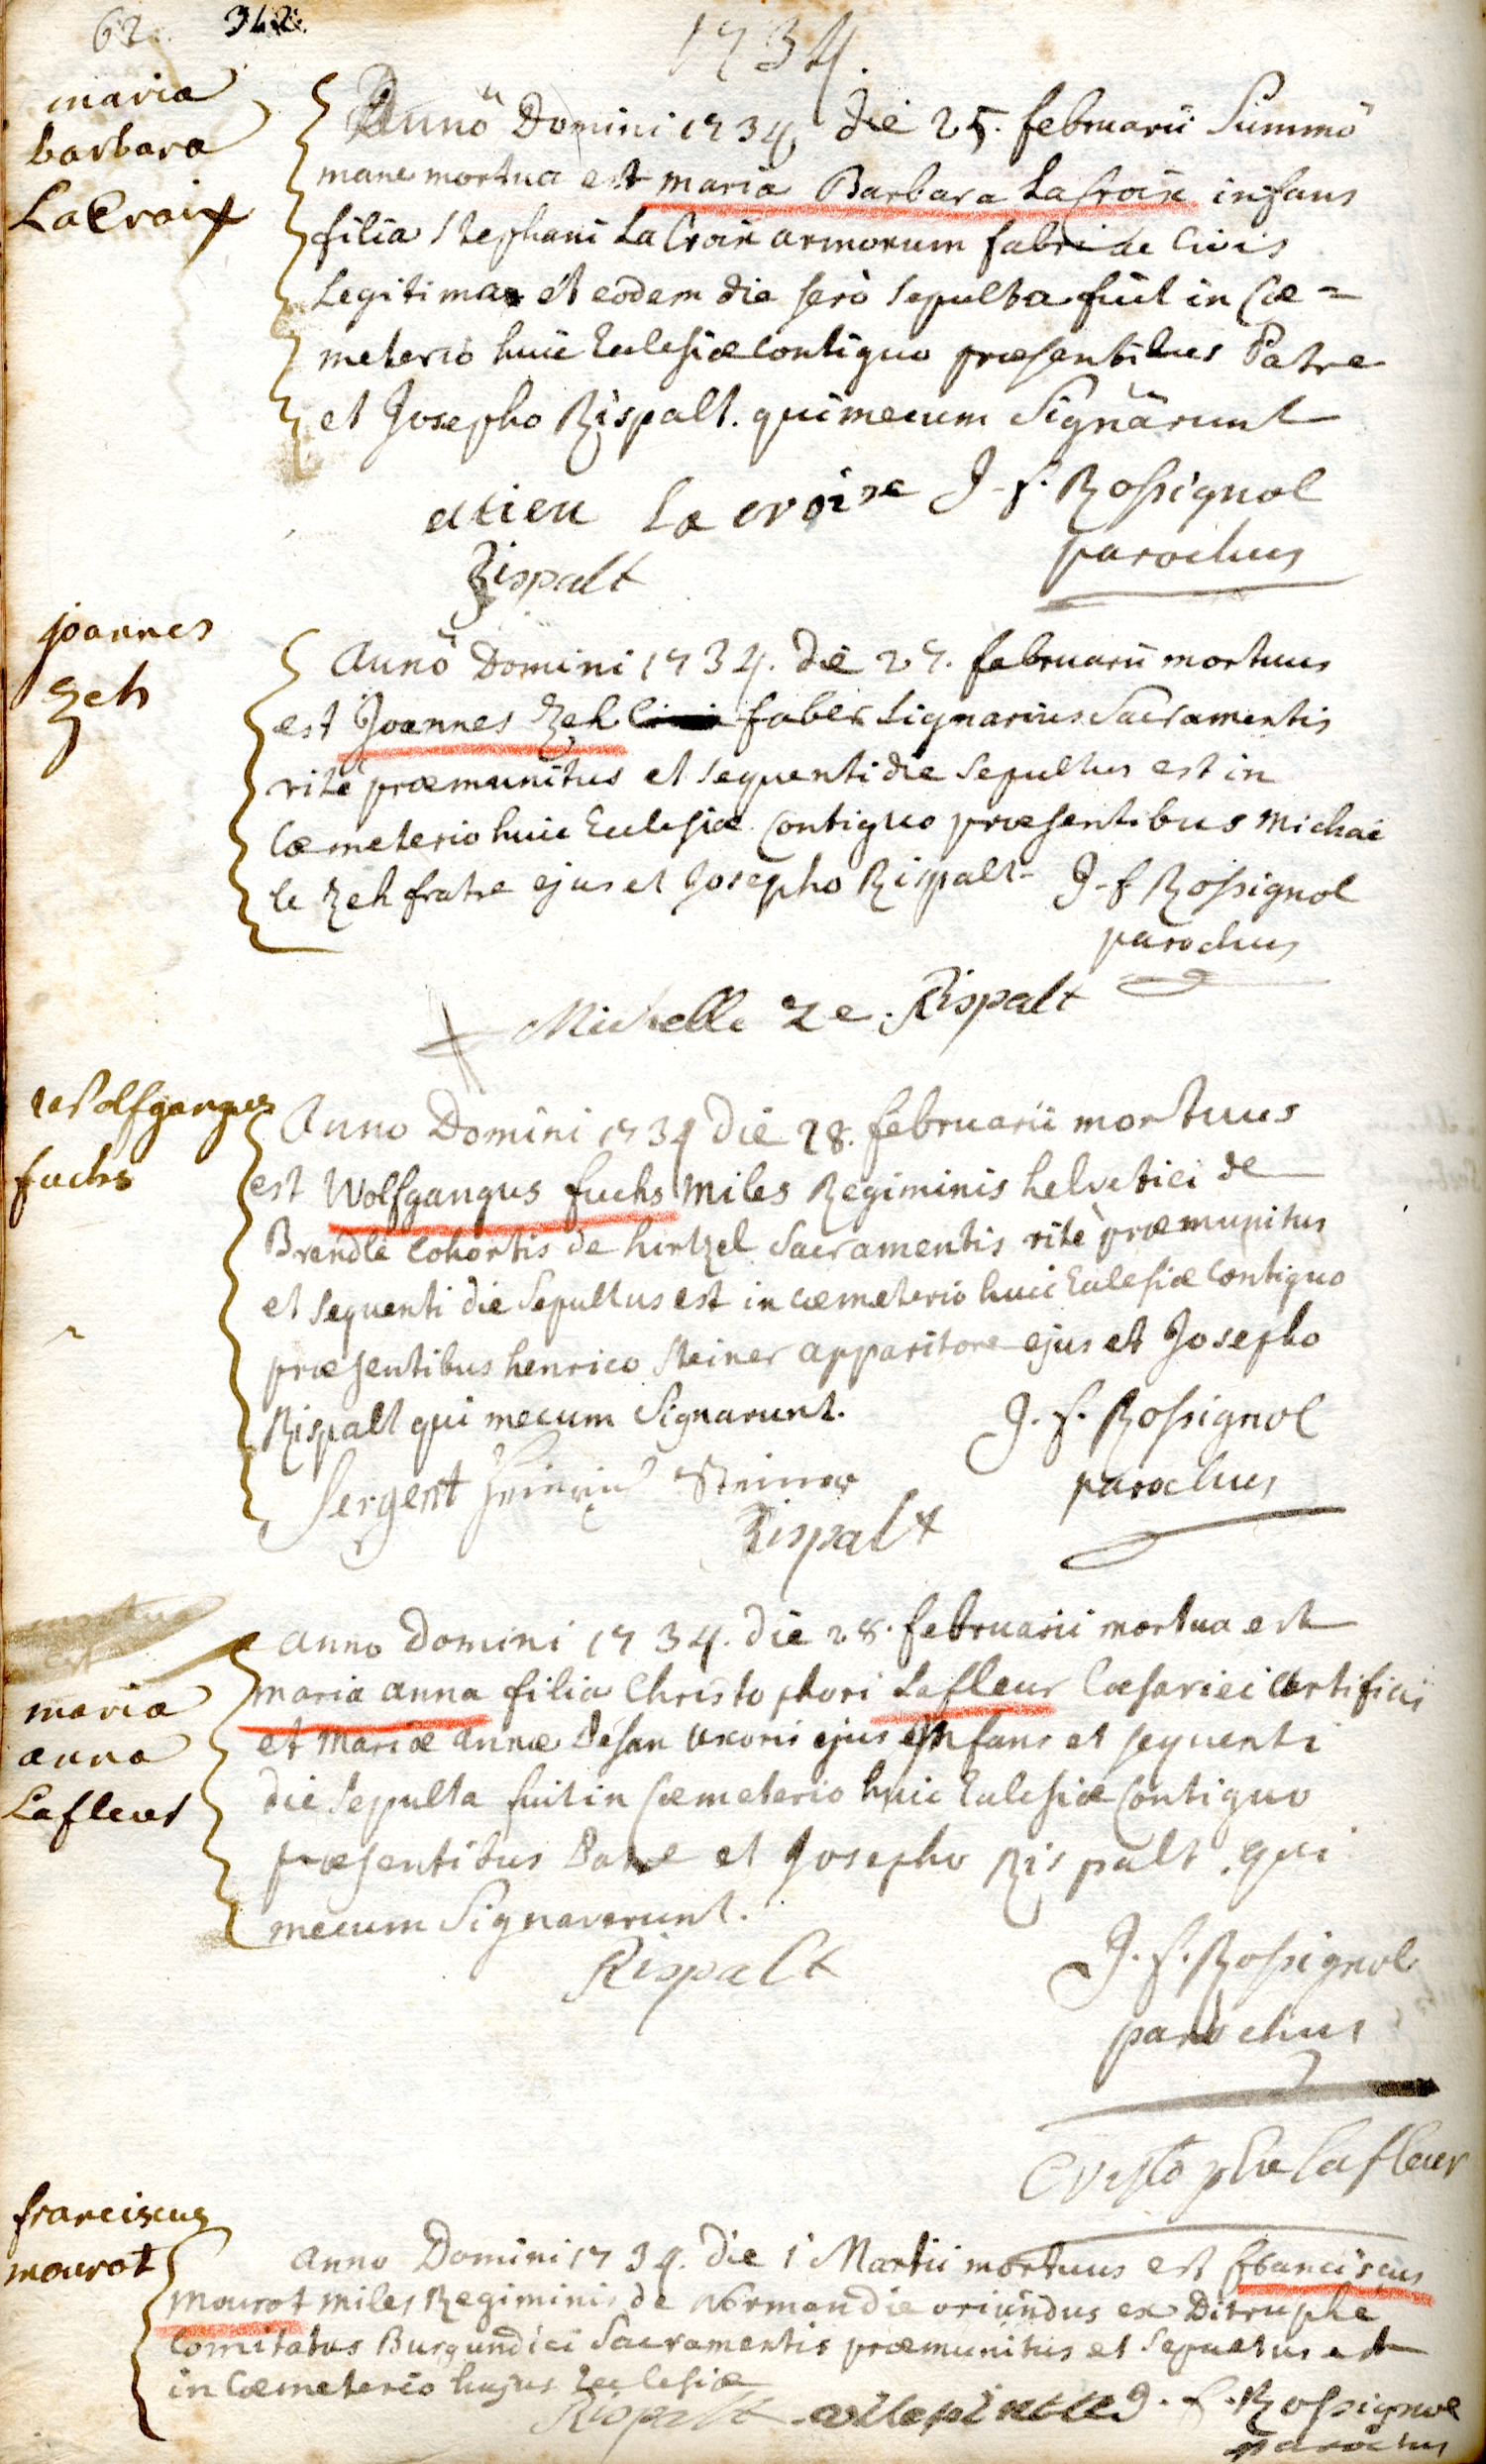 62. 342.
1734.
maria
barbara
LaCroix
Anno Domini 1734 die 25. februarii Summo
mane mortua est maria Barbara LaCroix infans
filia Stephani LaCroix armorum fabri ac Civis
Legitima et eodem die serò sepulta fuit in Cœ=
meterio huic Ecclesiæ contiguo præsentibus Patre
et Josepho Rispalt. qui mecum Signârunt
etien La croixe J. f. Rossignol
Rispalt parochus
joannes
Zeh
Anno Domini 1734. die 27. februarii mortuus
est Joannes Zeh faber Lignarius Sacramentis
ritè præmunitus et sequenti die sepultus est in
Cœmeterio huic Ecclesiæ Contiguo præsentibus Michae
le Zeh fratre ejus et Josepho Rispalt J. f Rossignol
parochus
Michelle Ze. Rispalt
Wolfgangus
fuchs
Anno Domini 1734 die 28. februarii mortuus
est Wolfgangus fuchs Miles Regiminis helvetici de
Brendlé Cohortis de hirtzel Sacramentis ritè præmunitus
et sequenti die Sepultus est in cœmeterio huic Ecclesiæ Contiguo
præsentibus henrico Steiner apparitore ejus et Josepho
Rispalt qui mecum Signarunt. J. f. Rossignol
Sergent Heinrich Steiner parochus
Rispalt
mortua
est
maria
anna
Lafleur
anno Domini 1734. die 28. februarii mortua est
maria anna filia Christophori Lafleur Cæsariei artificis
et Mariæ annæ Uxoris ejus infans et sequenti
die Sepulta fuit in Cœmeterio huic Ecclesiæ Contiguo
præsentibus Patre et Josepho Rispalt. qui
mecum Signaverunt.
Rispalt J. f. Rossignol
parochus
Cristophe Lafleur
franciscus
mourot
anno Domini 1734. die 1 Martii mortuus est franciscus
Mourot miles Regiminis de Normandie oriundus ex
Comitatus Burgundici Sacramentis præmunitus et Sepultus est
in Cœmeterio hujus Ecclesiæ
Rispalt J. f. Rossignol
parochus